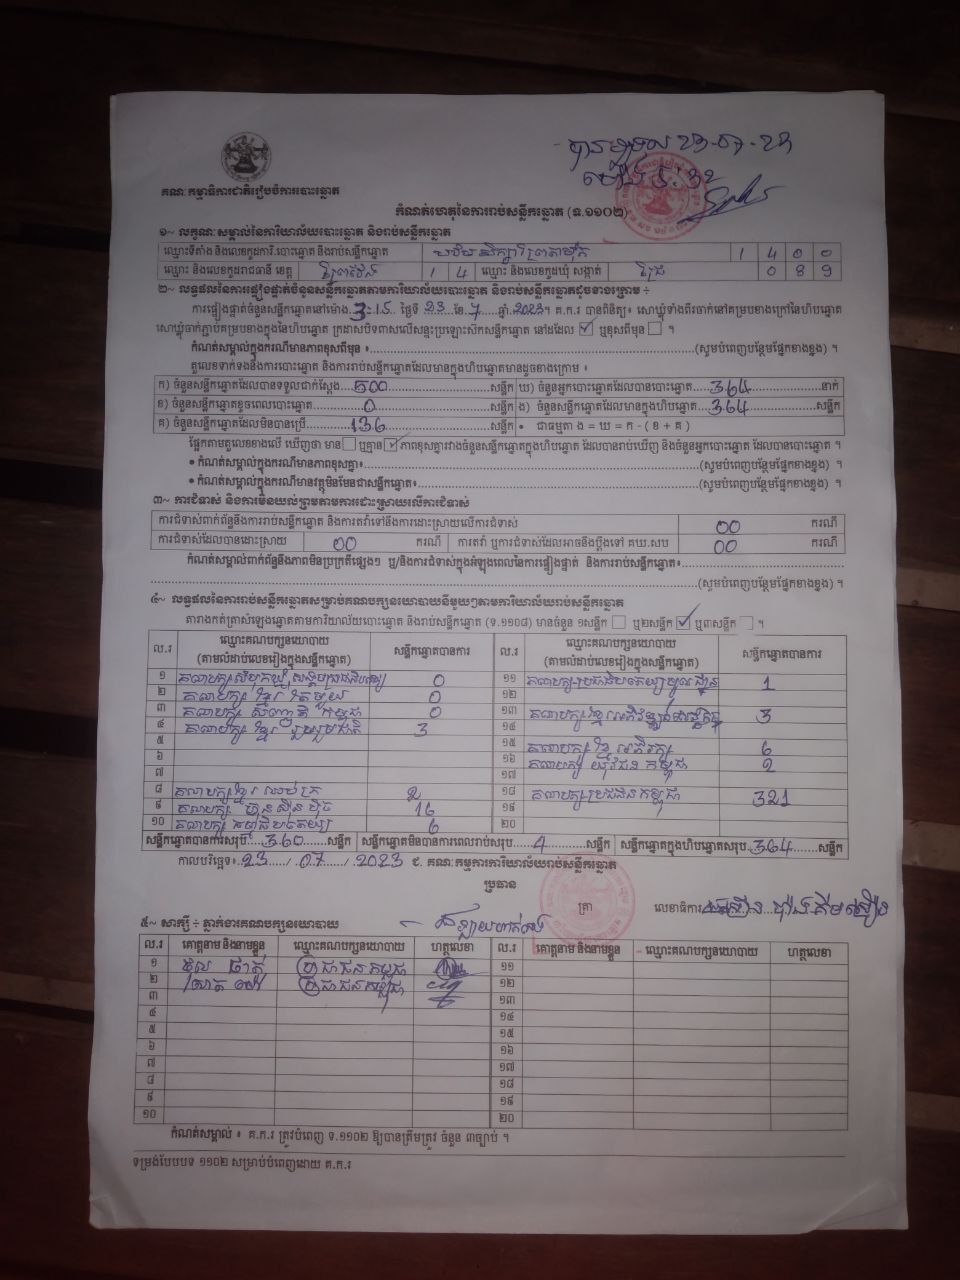 បានទទួល 23-07-23
ម៉ោង
គណៈកម្មាធិការជាតិរៀបចំការបោះឆ្នោត
កំណត់ហេតុនៃការរាប់សន្លឹកឆ្នោត (ទ.១១០២)
១~ លក្ខណៈសម្គាល់នៃការិយាល័យបោះឆ្នោត និងរាប់សន្លឹកឆ្នោត
ឈ្មោះទីតាំង និងលេខកូដការិ.បោះឆ្នោត និងរាប់សន្លឹកឆ្នោត 1 4 0 0
ឈ្មោះ និងលេខកូដរាជធានី ខេត្ត ព្រៃវែង 1 4 ឈ្មោះ និងលេខកូដឃុំ សង្កាត់ ជ្រៃ 0 8 9
២~ លទ្ធផលនៃការផ្ទៀងផ្ទាត់ចំនួនសន្លឹកឆ្នោតតាមការិយាល័យបោះឆ្នោត និងរាប់សន្លឹកឆ្នោតដូចខាងក្រោម ÷
ការផ្ទៀងផ្ទាត់ចំនួនសន្លឹកឆ្នោតនៅម៉ោង 3:15 ថ្ងៃទី 23 ខែ 7 ឆ្នាំ 2023។ គ.ក.រ បានពិនិត្យ៖ សោឃ្លុំទាំងពីរចាក់នៅគម្របខាងក្រៅនៃហិបឆ្នោត
សោឃ្លុំចាក់ភ្ជាប់គម្របខាងក្នុងនៃហិបឆ្នោត ក្រដាសបិទពាសលើសន្ទះប្រឡោះស៊កសន្លឹកឆ្នោត នៅដដែល ☑ ឬខុសពីមុន ☐ ។
កំណត់សម្គាល់ក្នុងករណីមានភាពខុសពីមុន ៖ (សូមបំពេញបន្ថែមផ្នែកខាងខ្នង) ។
តួលេខទាក់ទងនឹងការបោះឆ្នោត និងការរាប់សន្លឹកឆ្នោតដែលមានក្នុងហិបឆ្នោតមានដូចខាងក្រោម ៖
ក) ចំនួនសន្លឹកឆ្នោតដែលបានទទួលជាក់ស្តែង 500 សន្លឹក ឃ) ចំនួនអ្នកបោះឆ្នោតដែលបានបោះឆ្នោត 364 នាក់
ខ) ចំនួនសន្លឹកឆ្នោតខូចពេលបោះឆ្នោត 0 សន្លឹក ង) ចំនួនសន្លឹកឆ្នោតដែលមានក្នុងហិបឆ្នោត 364 សន្លឹក
គ) ចំនួនសន្លឹកឆ្នោតដែលមិនបានប្រើ 136 សន្លឹក • ជាធម្មតា ង = ឃ = ក - ( ខ + គ )
ផ្អែកតាមតួលេខខាងលើ ឃើញថា មាន ☐ ឬគ្មាន ☑ ភាពខុសគ្នារវាងចំនួនសន្លឹកឆ្នោតក្នុងហិបឆ្នោត ដែលបានរាប់ឃើញ និងចំនួនអ្នកបោះឆ្នោត ដែលបានបោះឆ្នោត ។
• កំណត់សម្គាល់ក្នុងករណីមានភាពខុសគ្នា៖ (សូមបំពេញបន្ថែមផ្នែកខាងខ្នង) ។
• កំណត់សម្គាល់ក្នុងករណីមានវត្ថុមិនមែនជាសន្លឹកឆ្នោត៖ (សូមបំពេញបន្ថែមផ្នែកខាងខ្នង) ។
៣~ ការជំទាស់ និងការមិនយល់ព្រមតាមការដោះស្រាយលើការជំទាស់
ការជំទាស់ពាក់ព័ន្ធនឹងការរាប់សន្លឹកឆ្នោត និងការតវ៉ាទៅនឹងការដោះស្រាយលើការជំទាស់ 00 ករណី
ការជំទាស់ដែលបានដោះស្រាយ 00 ករណី ការតវ៉ា ឬការជំទាស់ដែលអាចនឹងប្តឹងទៅ គឃ.សប 00 ករណី
កំណត់សម្គាល់ពាក់ព័ន្ធនឹងភាពមិនប្រក្រតីផ្សេងៗ ឬ/និងការជំទាស់ក្នុងអំឡុងពេលនៃការផ្ទៀងផ្ទាត់ និងការរាប់សន្លឹកឆ្នោត៖
(សូមបំពេញបន្ថែមផ្នែកខាងខ្នង) ។
៤~ លទ្ធផលនៃការរាប់សន្លឹកឆ្នោតសម្រាប់គណបក្សនយោបាយនីមួយៗតាមការិយាល័យរាប់សន្លឹកឆ្នោត
តារាងកត់ត្រាសំឡេងឆ្នោតតាមការិយាល័យបោះឆ្នោត និងរាប់សន្លឹកឆ្នោត (ទ.១១០៨) មានចំនួន ១សន្លឹក ☐ ឬ២សន្លឹក ☑ ឬ៣សន្លឹក ☐ ។
ល.រ ឈ្មោះគណបក្សនយោបាយ (តាមលំដាប់លេខរៀងក្នុងសន្លឹកឆ្នោត) សន្លឹកឆ្នោតបានការ ល.រ ឈ្មោះគណបក្សនយោបាយ (តាមលំដាប់លេខរៀងក្នុងសន្លឹកឆ្នោត) សន្លឹកឆ្នោតបានការ
១ 0 ១១ គណបក្សប្រជាធិបតេយ្យមូលដ្ឋាន 1
២ គណបក្ស ខ្មែរតែមួយ 0 ១២
៣ គណបក្ស សញ្ជាតិ កម្ពុជា 0 ១៣ 3
៤ គណបក្ស ខ្មែរ រួបរួមជាតិ 3 ១៤
៥ ១៥ គណបក្ស ខ្មែរអភិរក្ស 6
៦ ១៦ គណបក្ស យុវជន កម្ពុជា 2
៧ ១៧
៨ 2 ១៨ គណបក្សប្រជាជនកម្ពុជា 321
៩ គណបក្ស ហ៊្វុនស៊ិនប៉ិច 16 ១៩
១០ គណបក្ស ធម្មាធិបតេយ្យ 6 ២០
សន្លឹកឆ្នោតបានការសរុប 360 សន្លឹក សន្លឹកឆ្នោតមិនបានការលេរាប់សរុប 4 សន្លឹក សន្លឹកឆ្នោតក្នុងហិបឆ្នោតសរុប 364 សន្លឹក
កាលបរិច្ឆេទ៖ 23 / 07 / 2023 ជ. គណៈកម្មការការិយាល័យរាប់សន្លឹកឆ្នោត
ប្រធាន
ត្រា លេខាធិការ
៥~ សាក្សី ÷ ភ្នាក់ងារគណបក្សនយោបាយ
ល.រ គោត្តនាម និងនាមខ្លួន ឈ្មោះគណបក្សនយោបាយ ហត្ថលេខា ល.រ គោត្តនាម និងនាមខ្លួន ឈ្មោះគណបក្សនយោបាយ ហត្ថលេខា
១ ប្រជាជនកម្ពុជា ១១
២ ប្រជាជនកម្ពុជា ១២
៣ ១៣
៤ ១៤
៥ ១៥
៦ ១៦
៧ ១៧
៨ ១៨
៩ ១៩
១០ ២០
កំណត់សម្គាល់ ៖ គ.ក.រ ត្រូវបំពេញ ទ.១១០២ ឱ្យបានត្រឹមត្រូវ ចំនួន ៣ច្បាប់ ។
ទម្រង់បែបបទ ១១០២ សម្រាប់បំពេញដោយ គ.ក.រ